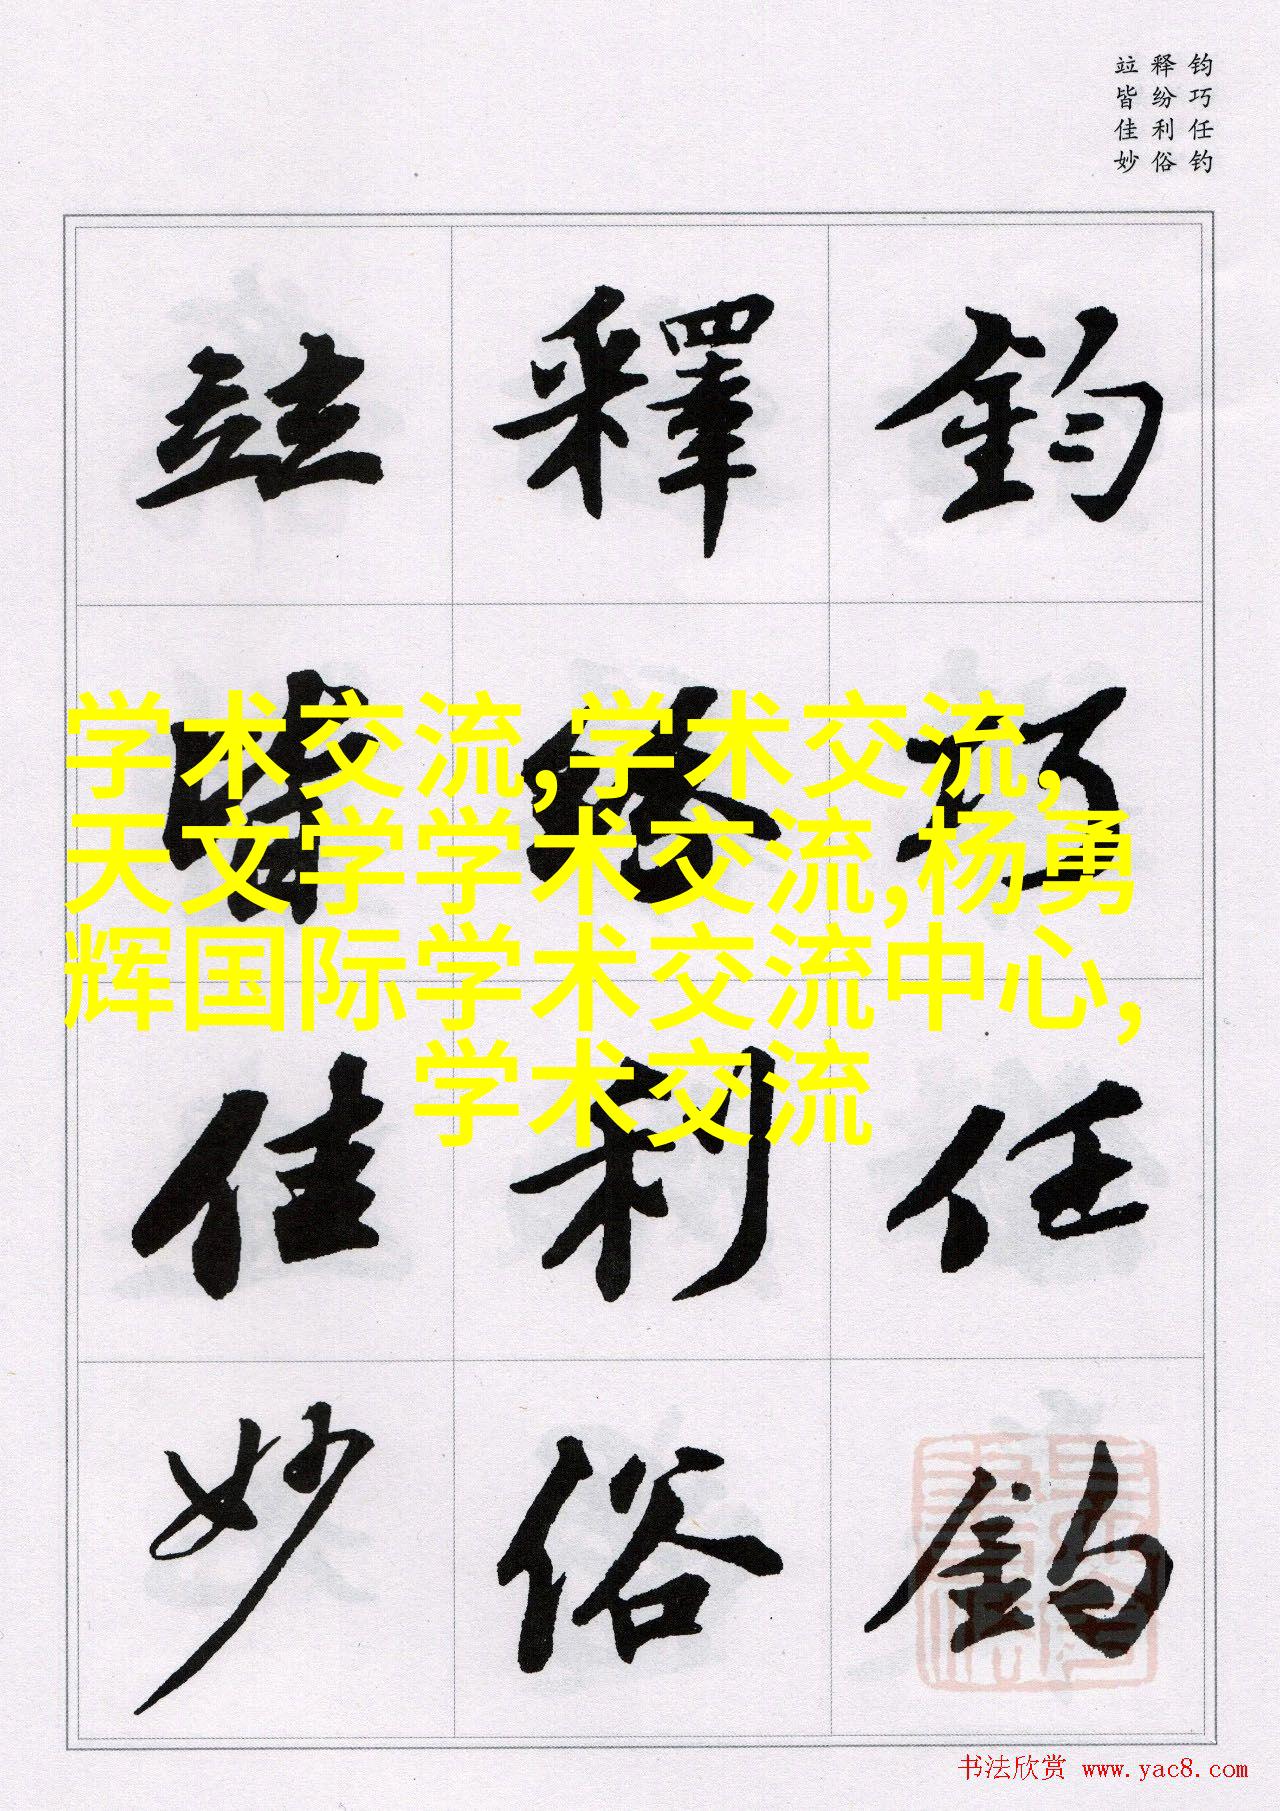 钧巧任钓
释纷利俗
竝皆佳妙
鈞巧任釣
釋紛利俗
竝皆佳妙
学术交流,学术交流,
天文学学术交流,杨勇
辉国际学术交流中心,
学术交流
书法欣赏 www.yac8.com